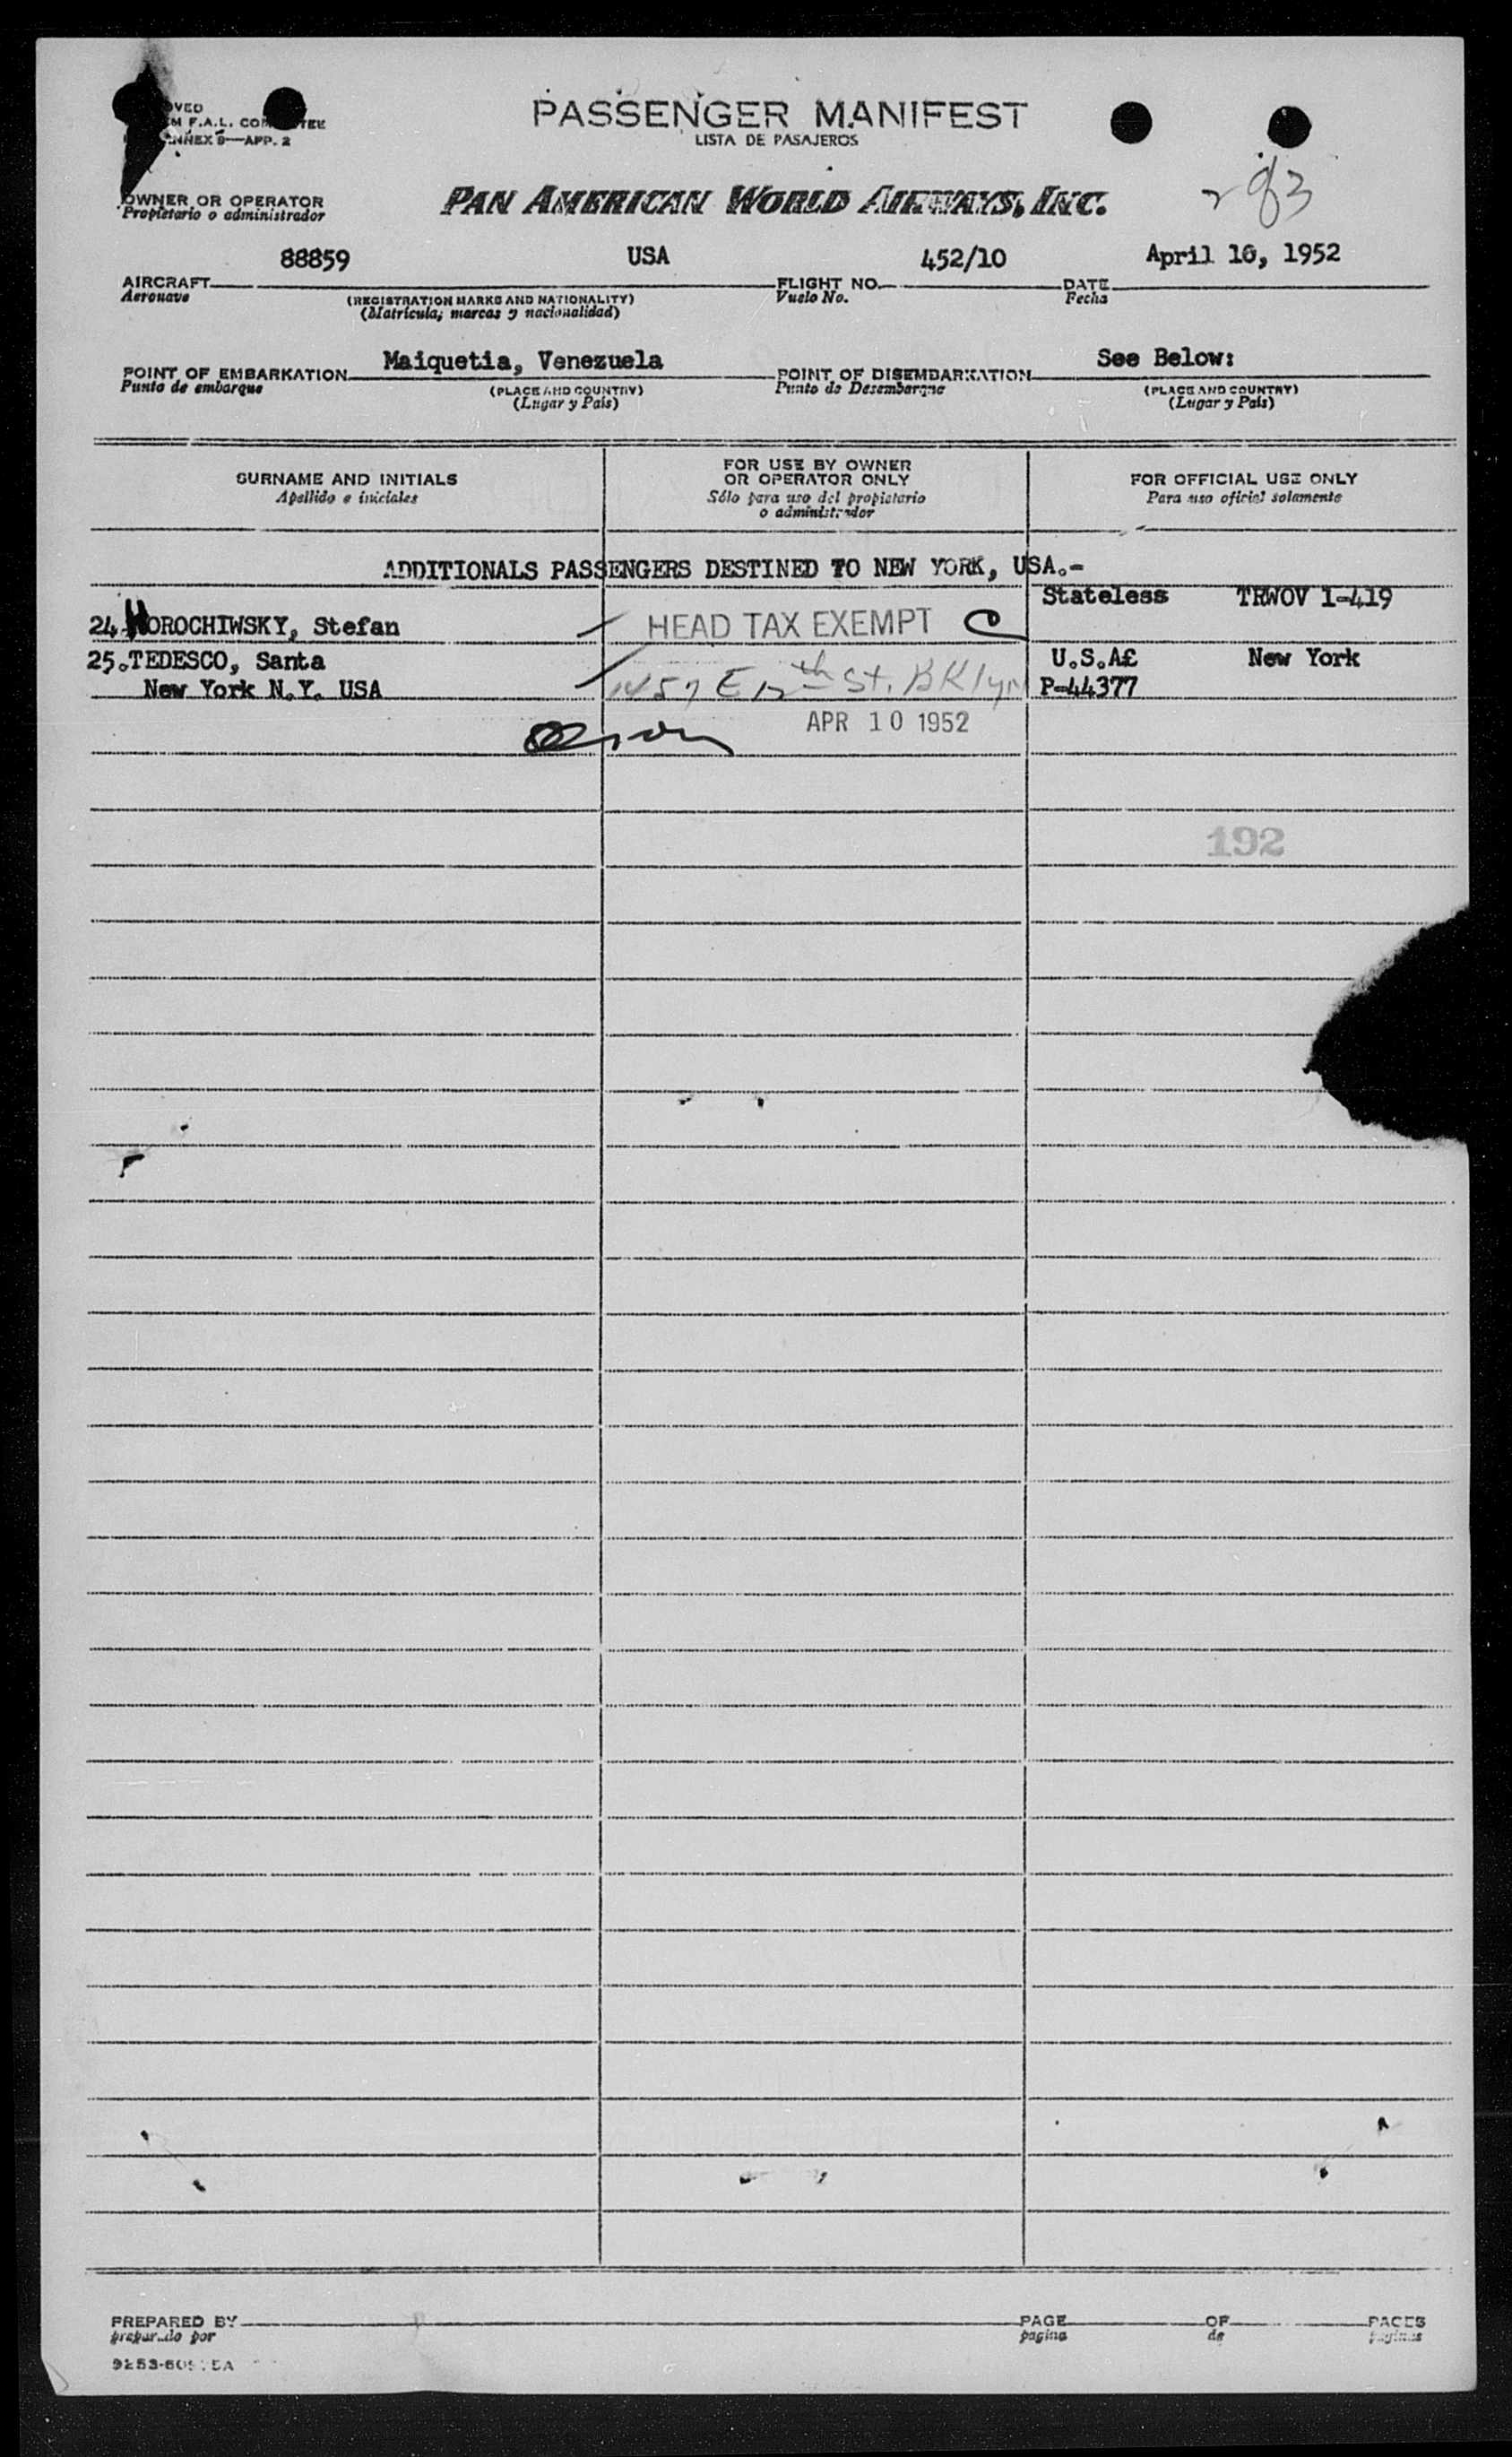 PASSENGER MANIFEST
LISTA DE PASAJEROS
M F.A.L.
ANNEX 9—APP. 2
OWNER OR OPERATOR
Propietario o administrador
PAN AMERICAN WORLD AIRWAYS, INC.
2 of 3
AIRCRAFT 88859 USA FLIGHT NO. 452/10 DATE April 10, 1952
Aeronave Vuelo No. Fecha
(REGISTRATION MARKS AND NATIONALITY)
(Matrícula, marcas y nacionalidad)
POINT OF EMBARKATION Maiquetia, Venezuela POINT OF DISEMBARKATION See Below:
Punto de embarque Punto de Desembarque
(PLACE AND COUNTRY) (PLACE AND COUNTRY)
(Lugar y País) (Lugar y País)
SURNAME AND INITIALS
Apellido e iniciales
FOR USE BY OWNER
OR OPERATOR ONLY
Sólo para uso del propietario
o administrador
FOR OFFICIAL USE ONLY
Para uso oficial solamente
ADDITIONALS PASSENGERS DESTINED TO NEW YORK, USA.-
24.HOROCHIWSKY, Stefan HEAD TAX EXEMPT C Stateless TRWOV 1-419
25.TEDESCO, Santa U.S.A£ New York
New York N.Y. USA 1457 E 12th St. BKlyn P-44377
APR 10 1952
192
PREPARED BY PAGE OF PAGES
preparado por pagina de paginas